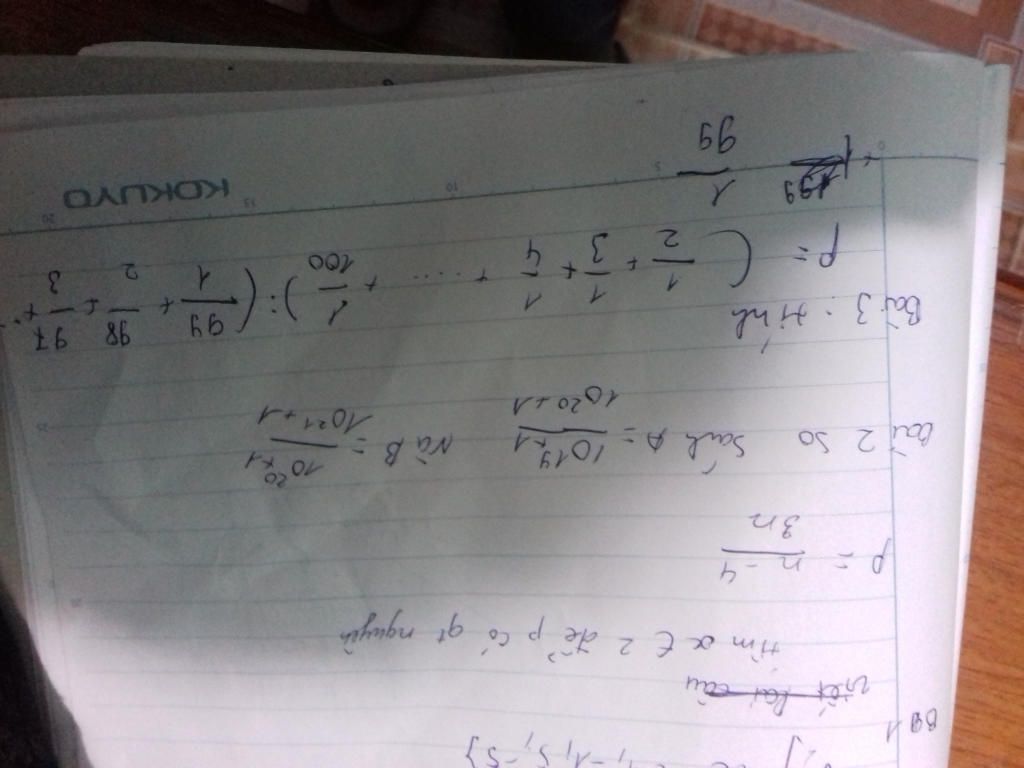 -1, 5, -5}
Bài 1
tìm x ∈ Z để p có gt nguyên
P = \frac{n-4}{3n}
bài 2 so sánh A = \frac{10^{19}+1}{10^{20}+1} và B = \frac{10^{20}+1}{10^{21}+1}
Bài 3 : tính
P = ( \frac{1}{2} + \frac{1}{3} + \frac{1}{4} + .... + \frac{1}{100} ) : ( \frac{99}{1} + \frac{98}{2} + \frac{97}{3} + ..
+ \frac{1}{99}
0 5 10 15 20
KOKUYO